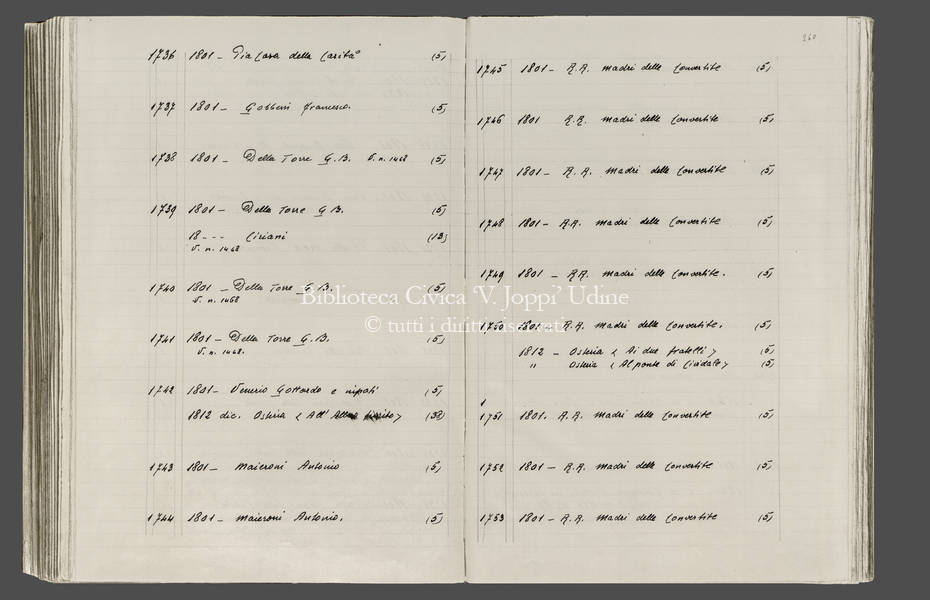 1736 1801 - Pia Casa della Carità (5)
1737 1801 - Gobbessi Francesco. (5)
1738 1801 - Della Torre G.B. V. n. 1468 (5)
1739 1801 - Della Torre G B. (5)
18--- Ciriani (13)
V. n. 1468
1740 1801 - Della Torre G.B. (5)
V. n. 1468
1741 1801 - Della Torre G.B. (5)
V. n. 1468.
1742 1801 - Venerio Gottardo e nipoti (5)
1812 dic. Osteria < All' > (38)
1743 1801 - Maieroni Antonio (5)
1744 1801 - Maieroni Antonio. (5)
260
1745 1801 - R.R. Madri delle Convertite (5)
1746 1801 R.R. Madri delle Convertite (5)
1747 1801 - R.R. Madri delle Convertite (5)
1748 1801 - R.R. Madri delle Convertite (5)
1749 1801 - R.R. Madri delle Convertite. (5)
1750 1801 - R.R. Madri delle Convertite. (5)
1812 - Osteria < Ai due fratelli > (5)
" Osteria < Al ponte di Cividale > (5)
1751 1801. R.R. Madri delle Convertite (5)
1752 1801 - R.R. Madri delle Convertite (5)
1753 1801 - R.R. Madri delle Convertite (5)
Biblioteca Civica 'V. Joppi' Udine
© tutti i diritti riservati